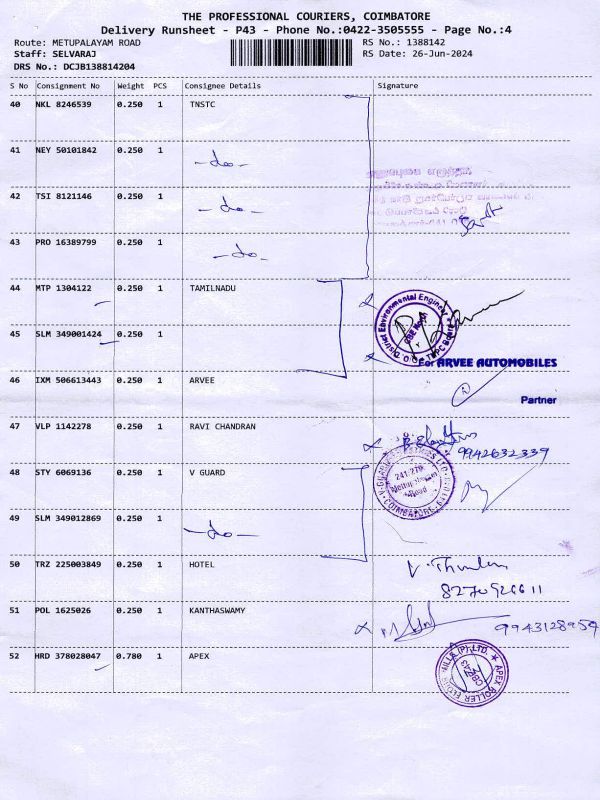 THE PROFESSIONAL COURIERS, COIMBATORE
Delivery Runsheet - P43 - Phone No.:0422-3505555 - Page No.:4
Route: METUPALAYAM ROAD
RS No.: 1388142
Staff: SELVARAJ
RS Date: 26-Jun-2024
DRS No.: DCJB138814204
S No Consignment No Weight PCS Consignee Details Signature
40 NKL 8246539 0.250 1 TNSTC
41 NEY 50101842 0.250 1 -do-
42 TSI 8121146 0.250 1 -do-
43 PRO 16389799 0.250 1 -do-
44 MTP 1304122 0.250 1 TAMILNADU
District Environmental Engineer
45 SLM 349001424 0.250 1
For ARVEE AUTOMOBILES
46 IXM 506613443 0.250 1 ARVEE
Partner
47 VLP 1142278 0.250 1 RAVI CHANDRAN
9942632339
48 STY 6069136 0.250 1 V GUARD
Road
COIMBATORE
49 SLM 349012869 0.250 1 -do-
50 TRZ 225003849 0.250 1 HOTEL
8270926611
51 POL 1625026 0.250 1 KANTHASWAMY
9943128959
52 HRD 378028047 0.780 1 APEX
APEX ROLLER FLOUR MILLS (P) LTD.